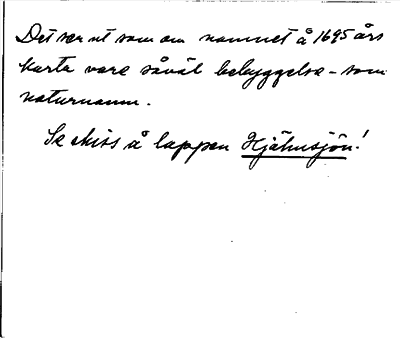 Det ser ut som om namnet å 1695 års
karta vore såväl bebyggelse- som
naturnamn.
Se skiss å lappen Hjälmsjön!